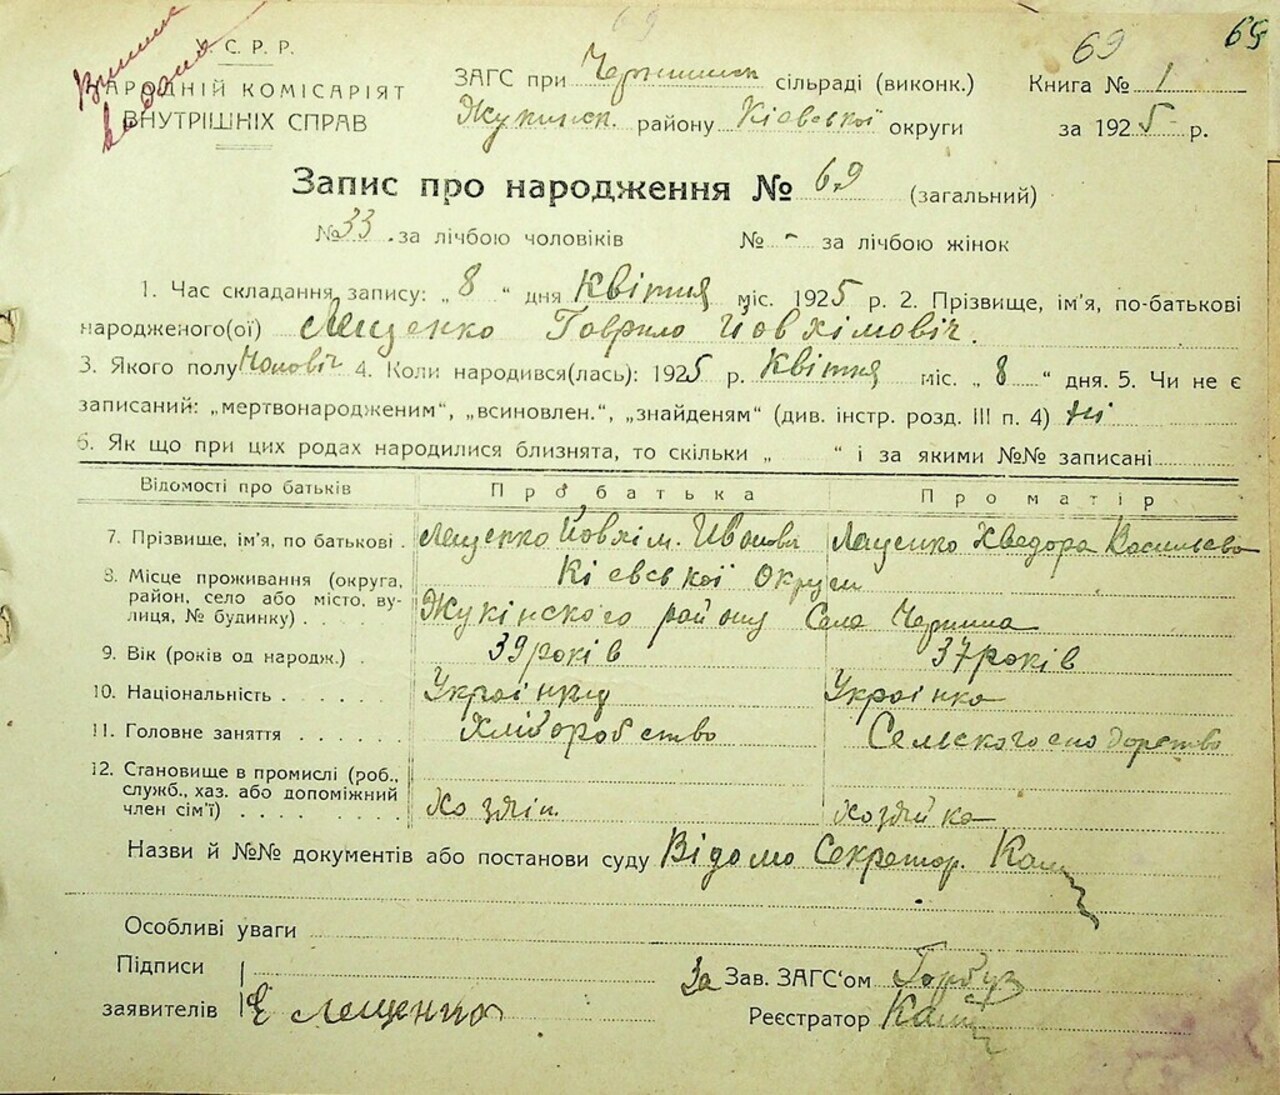 69 69 65
С. Р. Р.
АРОДНІЙ КОМІСАРІЯТ
ВНУТРІШНІХ СПРАВ
ЗАГС при сільраді (виконк.)
Жукинск. району Кіевської округи
Книга № 1
за 1925 р.
Запис про народження № 69 (загальний)
№ 33 . за лічбою чоловіків № - за лічбою жінок
1. Час складання запису: „ 8 “ дня Квітня міс. 1925 р. 2. Прізвище, ім’я, по-батькові
народженого(ої) Лещенко Гаврило Йовхімовіч.
3. Якого полу Чоловіч 4. Коли народився(лась): 1925 р. Квітня міс. „ 8 “ дня. 5. Чи не є
записаний: „мертвонародженим“, „всиновлен.“, „знайденям“ (див. інстр. розд. III п. 4) ні
6. Як що при цих родах народилися близнята, то скільки „ “ і за якими №№ записані
Відомості про батьків Про батька Про матір
7. Прізвище, ім’я, по батькові . Лещенко Йовхім. Ивонови Лещенко Хведора Васильева
8. Місце проживання (округа, Кіевської Округи
район, село або місто, ву-
лиця, № будинку) . . . . Жукінского району Села Чернина
9. Вік (років од народж.) . 39 років 37 років
10. Національність . . . . . Украінец Украінка
11. Головне заняття . . . . . . Хліборобство Сельскогосподорство
12. Становище в промислі (роб.,
служб., хаз. або допоміжний
член сім’ї) . . . . . . . . . Хозяін. Хозяйка
Назви й №№ документів або постанови суду Відомо Секретор.
Особліві уваги
Підписи За Зав. ЗАГС‘ом Горбуз
заявителів Е Лещенко
Реєстратор